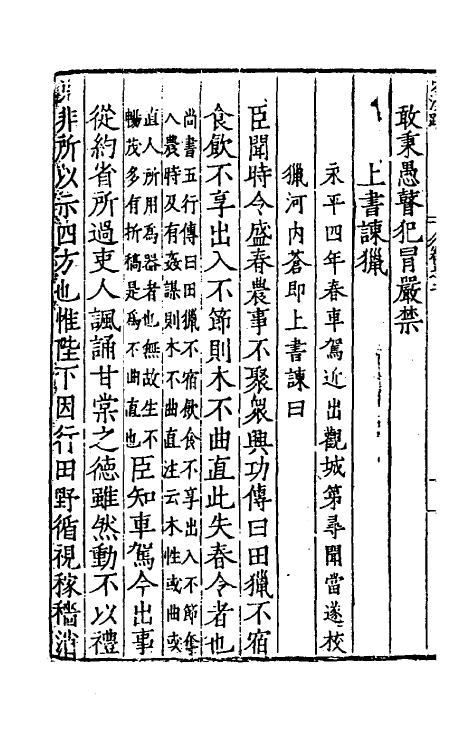 敢秉愚瞽犯冒嚴禁
上書諫獵
永平四年春車駕近出觀城第尋聞當遂校
獵河内蒼即上書諫曰
臣聞時令盛春農事不聚衆興功傳曰田獵不宿
食飲不享出入不節則木不曲直此失春令者也
尚書五行傳曰田獵不宿飲食不享出入不節奪
人農時及有姦謀則木不曲直注云木性或曲或
直人所用爲器者也無故生不
暢茂多有折槁是爲不曲直也
臣知車駕今出事
從約省所過吏人諷誦甘棠之德雖然動不以禮
非所以示四方也惟陛下因行田野循視稼穡消